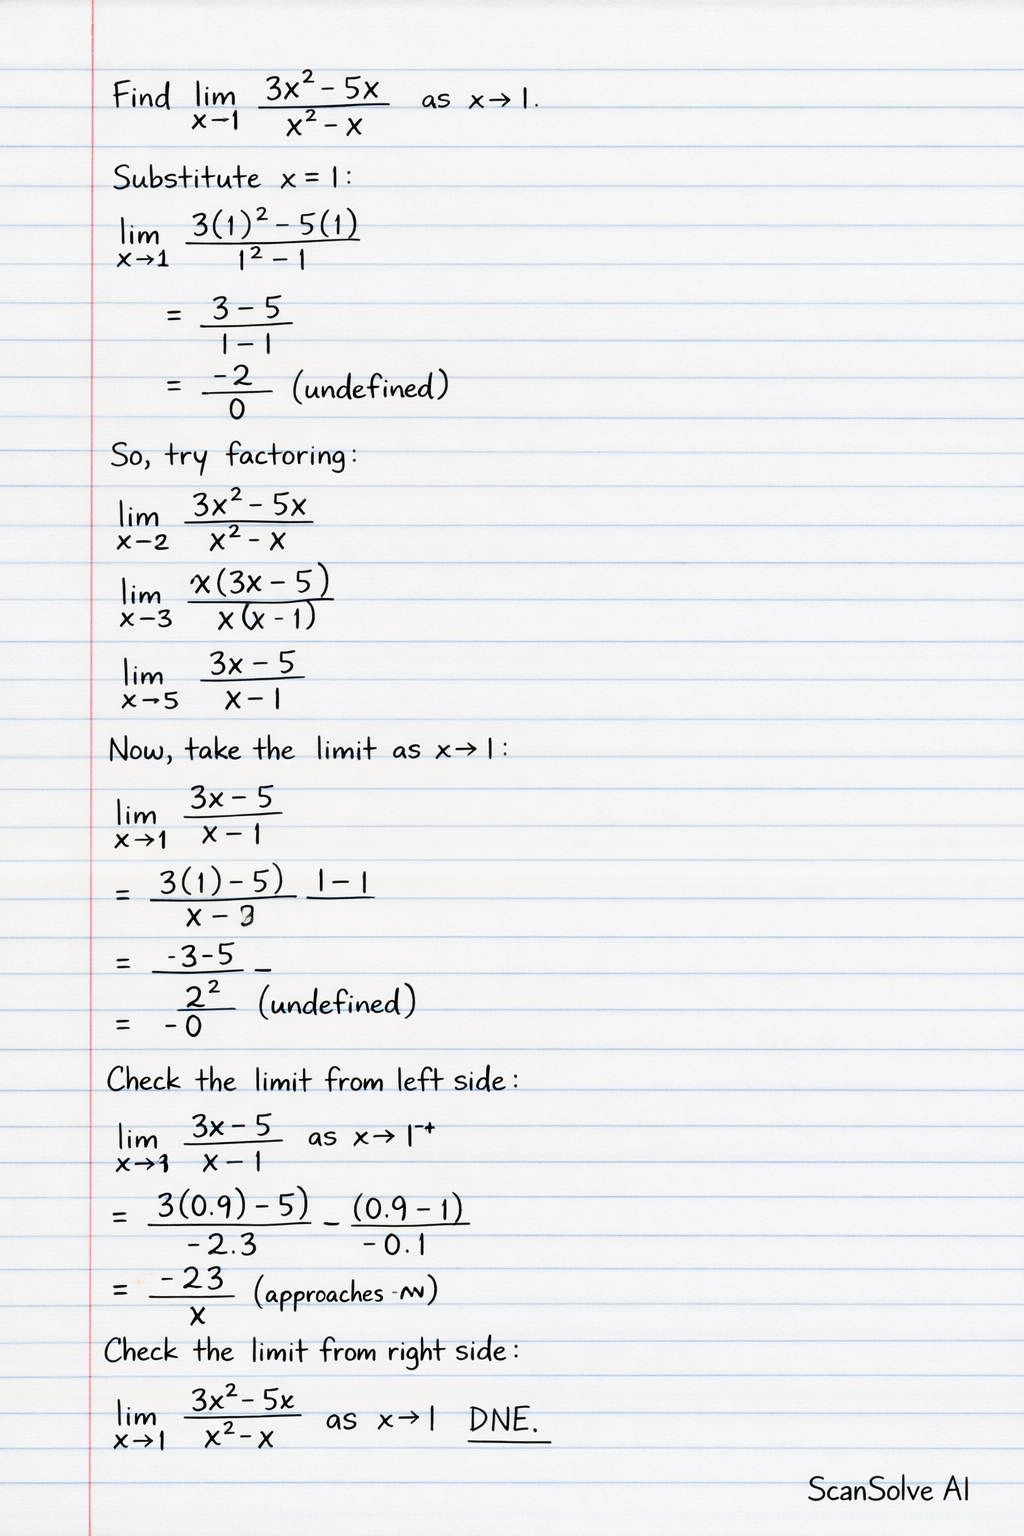 Find lim x→1 (3x² - 5x)/(x² - x) as x→1.
Substitute x = 1:
lim x→1 (3(1)² - 5(1))/(1² - 1)
= (3 - 5)/(1 - 1)
= -2/0 (undefined)
So, try factoring:
lim x-2 (3x² - 5x)/(x² - x)
lim x-3 x(3x - 5)/x(x - 1)
lim x→5 (3x - 5)/(x - 1)
Now, take the limit as x→1:
lim x→1 (3x - 5)/(x - 1)
= 3(1) - 5)/(x - 3) 1 - 1
= -3-5 -
= 2²/-0 (undefined)
Check the limit from left side:
lim x→1 (3x - 5)/(x - 1) as x→1⁻⁺
= 3(0.9) - 5)/-2.3 - (0.9 - 1)/-0.1
= -23/x (approaches -)
Check the limit from right side:
lim x→1 (3x² - 5x)/(x² - x) as x→1 DNE.
ScanSolve AI